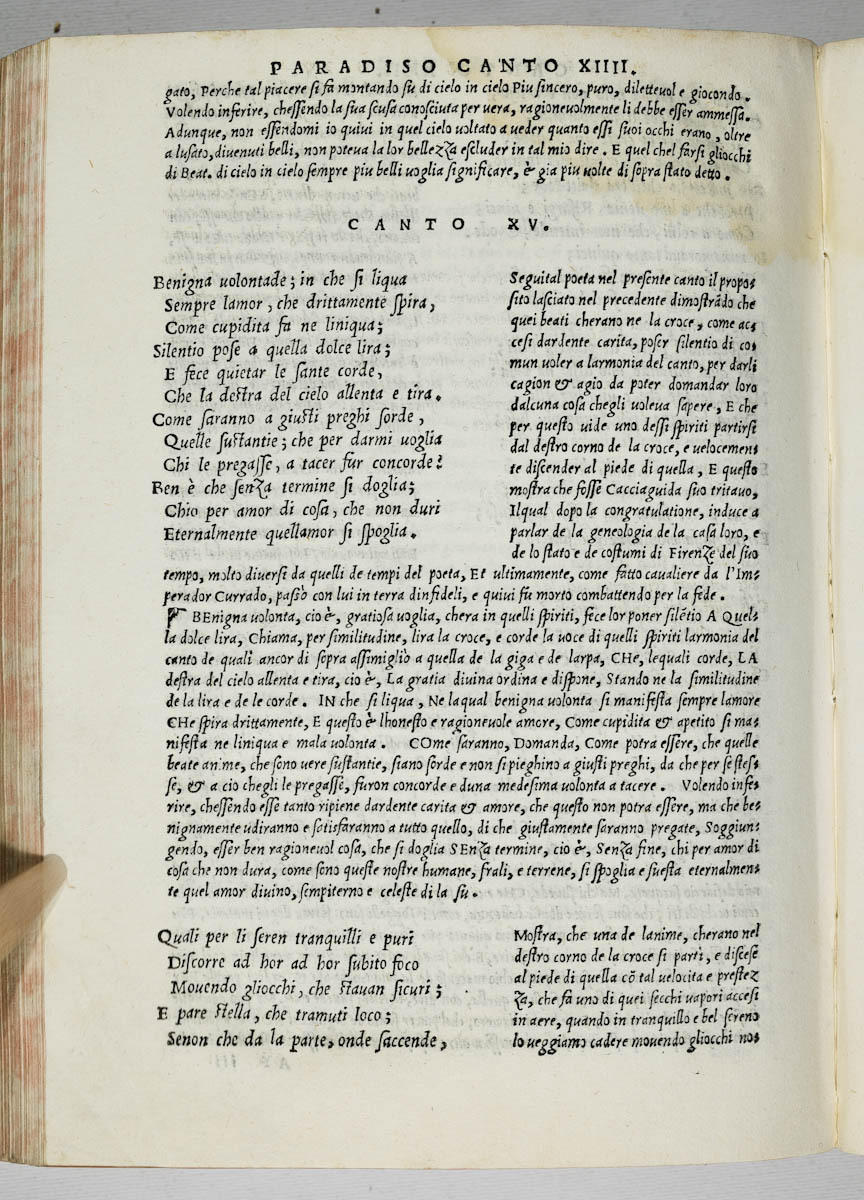 PARADISO CANTO XIIII.
gato, Perche tal piacere si fa montando su di cielo in cielo Piu sincero, puro, dilettevol e giocondo.
Volendo inferire, chessendo la sua scusa conosciuta per vera, ragionevolmente li debbe esser ammessa.
Adunque, non essendomi io quivi in quel cielo voltato a veder quanto essi suoi occhi erano, oltre
a lusato, divenuti belli, non poteva la lor bellezza escluder in tal mio dire. E quel chel farsi gliocchi
di Beat. di cielo in cielo sempre piu belli voglia significare, è gia piu volte di sopra stato detto.
CANTO XV.
Benigna uolontade; in che si liqua
Sempre lamor, che drittamente spira,
Come cupidita fa ne liniqua;
Silentio pose a quella dolce lira;
E fece quietar le sante corde,
Che la destra del cielo allenta e tira.
Come saranno a giusti preghi sorde,
Quelle sustantie; che per darmi uoglia
Chi le pregasse, a tacer fur concorde?
Ben è che senza termine si doglia;
Chio per amor di cosa, che non duri
Eternalmente quellamor si spoglia.
Seguital poeta nel presente canto il propo-
sito lasciato nel precedente dimostrādo che
quei beati cherano ne la croce, come ac-
cesi dardente carita, poser silentio di co-
mun uoler a larmonia del canto, per darli
cagion & agio da poter domandar loro
dalcuna cosa chegli uoleva sapere, E che
per questo uide uno dessi spiriti partirsi
dal destro corno de la croce, e uelocemen-
te discender al piede di quella, E questo
mostra che fosse Cacciaguida suo tritauo,
Ilqual dopo la congratulatione, induce a
parlar de la geneologia de la casa loro, e
de lo stato e de costumi di Firenze del suo
tempo, molto diuersi da quelli de tempi del poeta, Et ultimamente, come fatto caualiere da l'Im-
perador Currado, passò con lui in terra dinfideli, e quiui fu morto combattendo per la fede.
BEnigna uolonta, cio è, gratiosa uoglia, chera in quelli spiriti, fece lor poner silētio A Quel-
la dolce lira, Chiama, per similitudine, lira la croce, e corde la uoce di quelli spiriti larmonia del
canto de quali ancor di sopra assimigliò a quella de la giga e de larpa, CHe, lequali corde, LA
destra del cielo allenta e tira, cio è, La gratia diuina ordina e dispone, Stando ne la similitudine
de la lira e de le corde. IN che si liqua, Ne laqual benigna uolonta si manifesta sempre lamore
CHe spira drittamente, E questo è lhonesto e ragioneuole amore, Come cupidita & apetito si ma-
nifesta ne liniqua e mala uolonta. COme saranno, Domanda, Come potra essere, che quelle
beate anime, che sono uere sustantie, siano sorde e non si pieghino a giusti preghi, da che per se stes-
se, & a cio chegli le pregasse, furon concorde e duna medesima uolonta a tacere. Volendo infe-
rire, chessendo esse tanto ripiene dardente carita & amore, che questo non potra essere, ma che be-
nignamente udiranno e satisfaranno a tutto quello, di che giustamente saranno pregate, Soggiun-
gendo, esser ben ragioneuol cosa, che si doglia SEnza termine, cio è, Senza fine, chi per amor di
cosa che non dura, come sono queste nostre humane, frali, e terrene, si spoglia e suesta eternalmen-
te quel amor diuino, sempiterno e celeste di la su.
Quali per li seren tranquilli e puri
Discorre ad hor ad hor subito foco
Mouendo gliocchi, che stauan sicuri;
E pare stella, che tramuti loco;
Senon che da la parte, onde saccende,
Mostra, che una de lanime, cherano nel
destro corno de la croce si parti, e discese
al piede di quella cō tal uelocita e prestez
za, che fa uno di quei secchi uapori accesi
in aere, quando in tranquillo e bel sereno
lo ueggiamo cadere mouendo gliocchi nos-